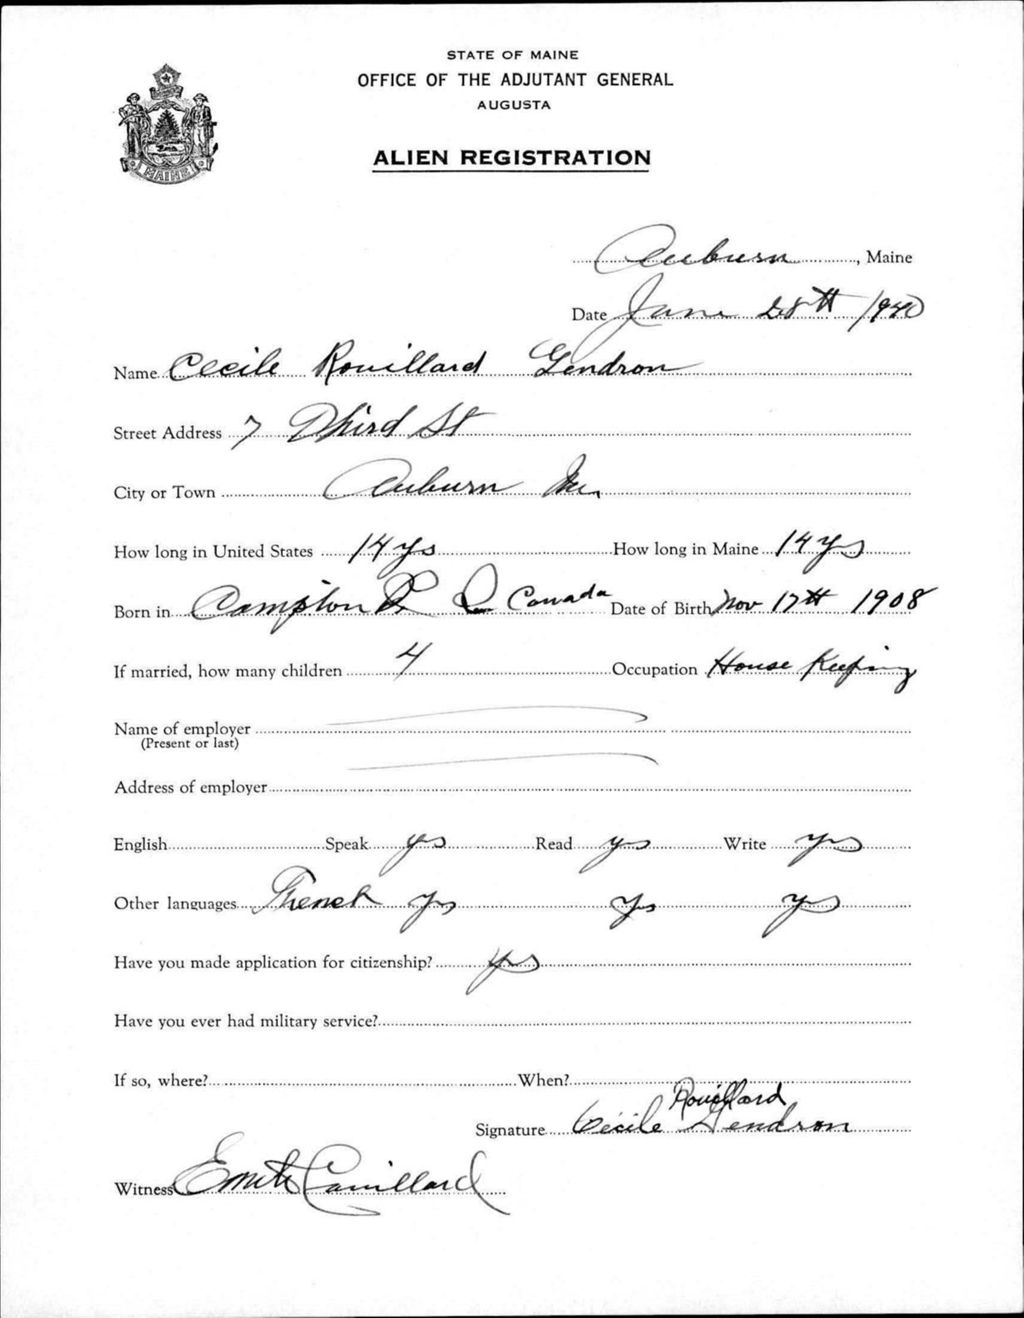 STATE OF MAINE
OFFICE OF THE ADJUTANT GENERAL
AUGUSTA
ALIEN REGISTRATION
MAINE
Auburn, Maine
Date June 28th 1940
Name Cecile Rouillard Gendron
Street Address 7 Third St
City or Town Auburn Me.
How long in United States 14 ys How long in Maine 14 ys
Born in Compton P Q Canada Date of Birth Nov 17th 1908
If married, how many children 4 Occupation House Keeping
Name of employer
(Present or last)
Address of employer
English Speak yes Read yes Write yes
Other languages French yes yes yes
Have you made application for citizenship? yes
Have you ever had military service?
If so, where? When?
Rouillard
Signature Cecile Gendron
Witness